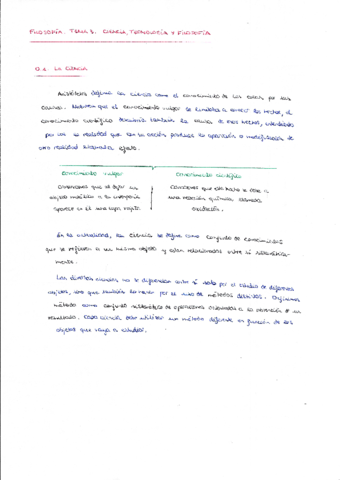 FILOSOFÍA. TEMA 3. CIENCIA, TECNOLOGÍA Y FILOSOFÍA
LA CIENCIA
Aristóteles define la ciencia como el conocimiento de las cosas por sus
causas. Mientras que el conocimiento vulgar se limitaría a conocer los hechos, el
conocimiento científico buscaría también la causa de esos hechos, entendiendo
por causa la realidad que con su acción produce la aparición o modificación de
otra realidad llamada efecto.
Conocimiento vulgar
Conocimiento científico
Conocemos que al dejar un
objeto metálico a la intemperie
aparece en él una capa rojiza.
Conocemos que este hecho se debe a
una reacción química llamada
oxidación.
En la actualidad, la ciencia se define como conjunto de conocimientos
que se refieren a un mismo objeto y están relacionados entre sí sistemática-
mente.
Las distintas ciencias no se diferencian entre sí solo por el estudio de diferentes
objetos, sino que también lo hacen por el uso de métodos distintos. Definimos
método como conjunto sistemático de operaciones orientadas a la obtención de un
resultado. Cada ciencia debe utilizar un método diferente en función de los
objetos que vaya a estudiar.